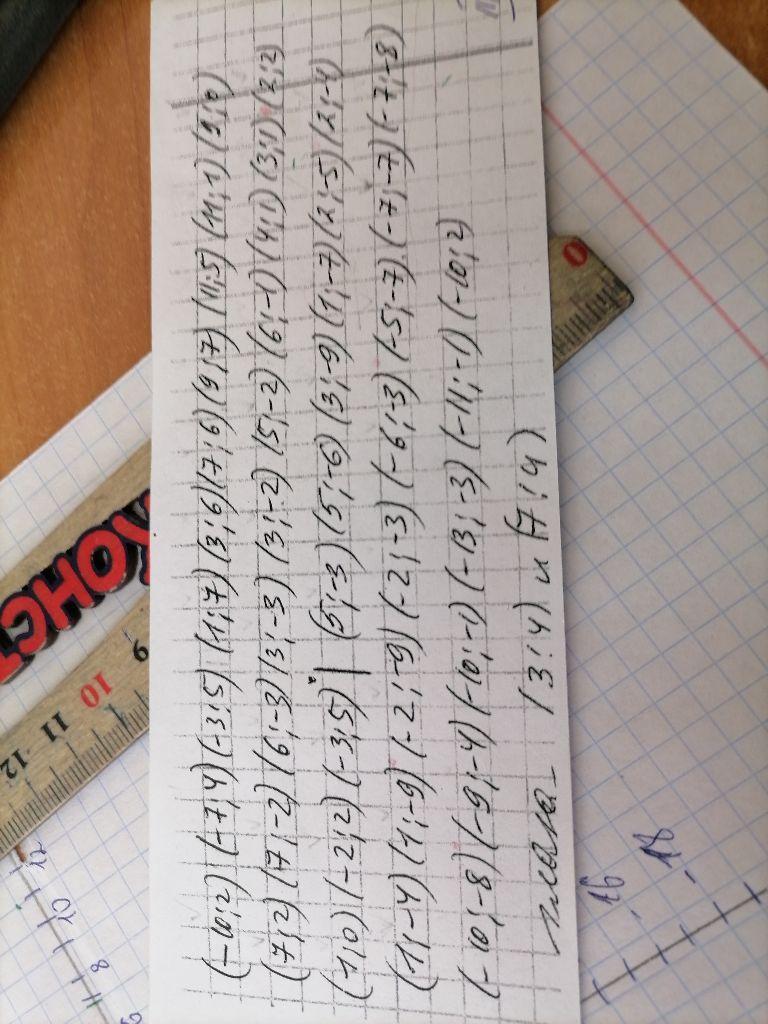 (-10;2) (-7;4) (-3;5) (1;7) (3;6) (7;6) (9;7) (11;5) (11;-1) (9;0)
(7;2) (7;-2) (6;-3) (3;-3) (3;-2) (5;-2) (6;-1) (4;1) (3;1) (2;2)
(1;0) (-2;2) (-3;5) | (5;-3) (5;-6) (3;-9) (1;-7) (2;-5) (2;-4)
(1;-4) (1;-9) (-2;-9) (-2;-3) (-6;-3) (-5;-7) (-7;-7) (-7;-8)
(-10;-8) (-9;-4) (-10;-1) (-13;-3) (-11;-1) (-10;2)
глаза - (3;4) и (7;4)
КОНСТ
0
9
10
11
12
8
10
16
18